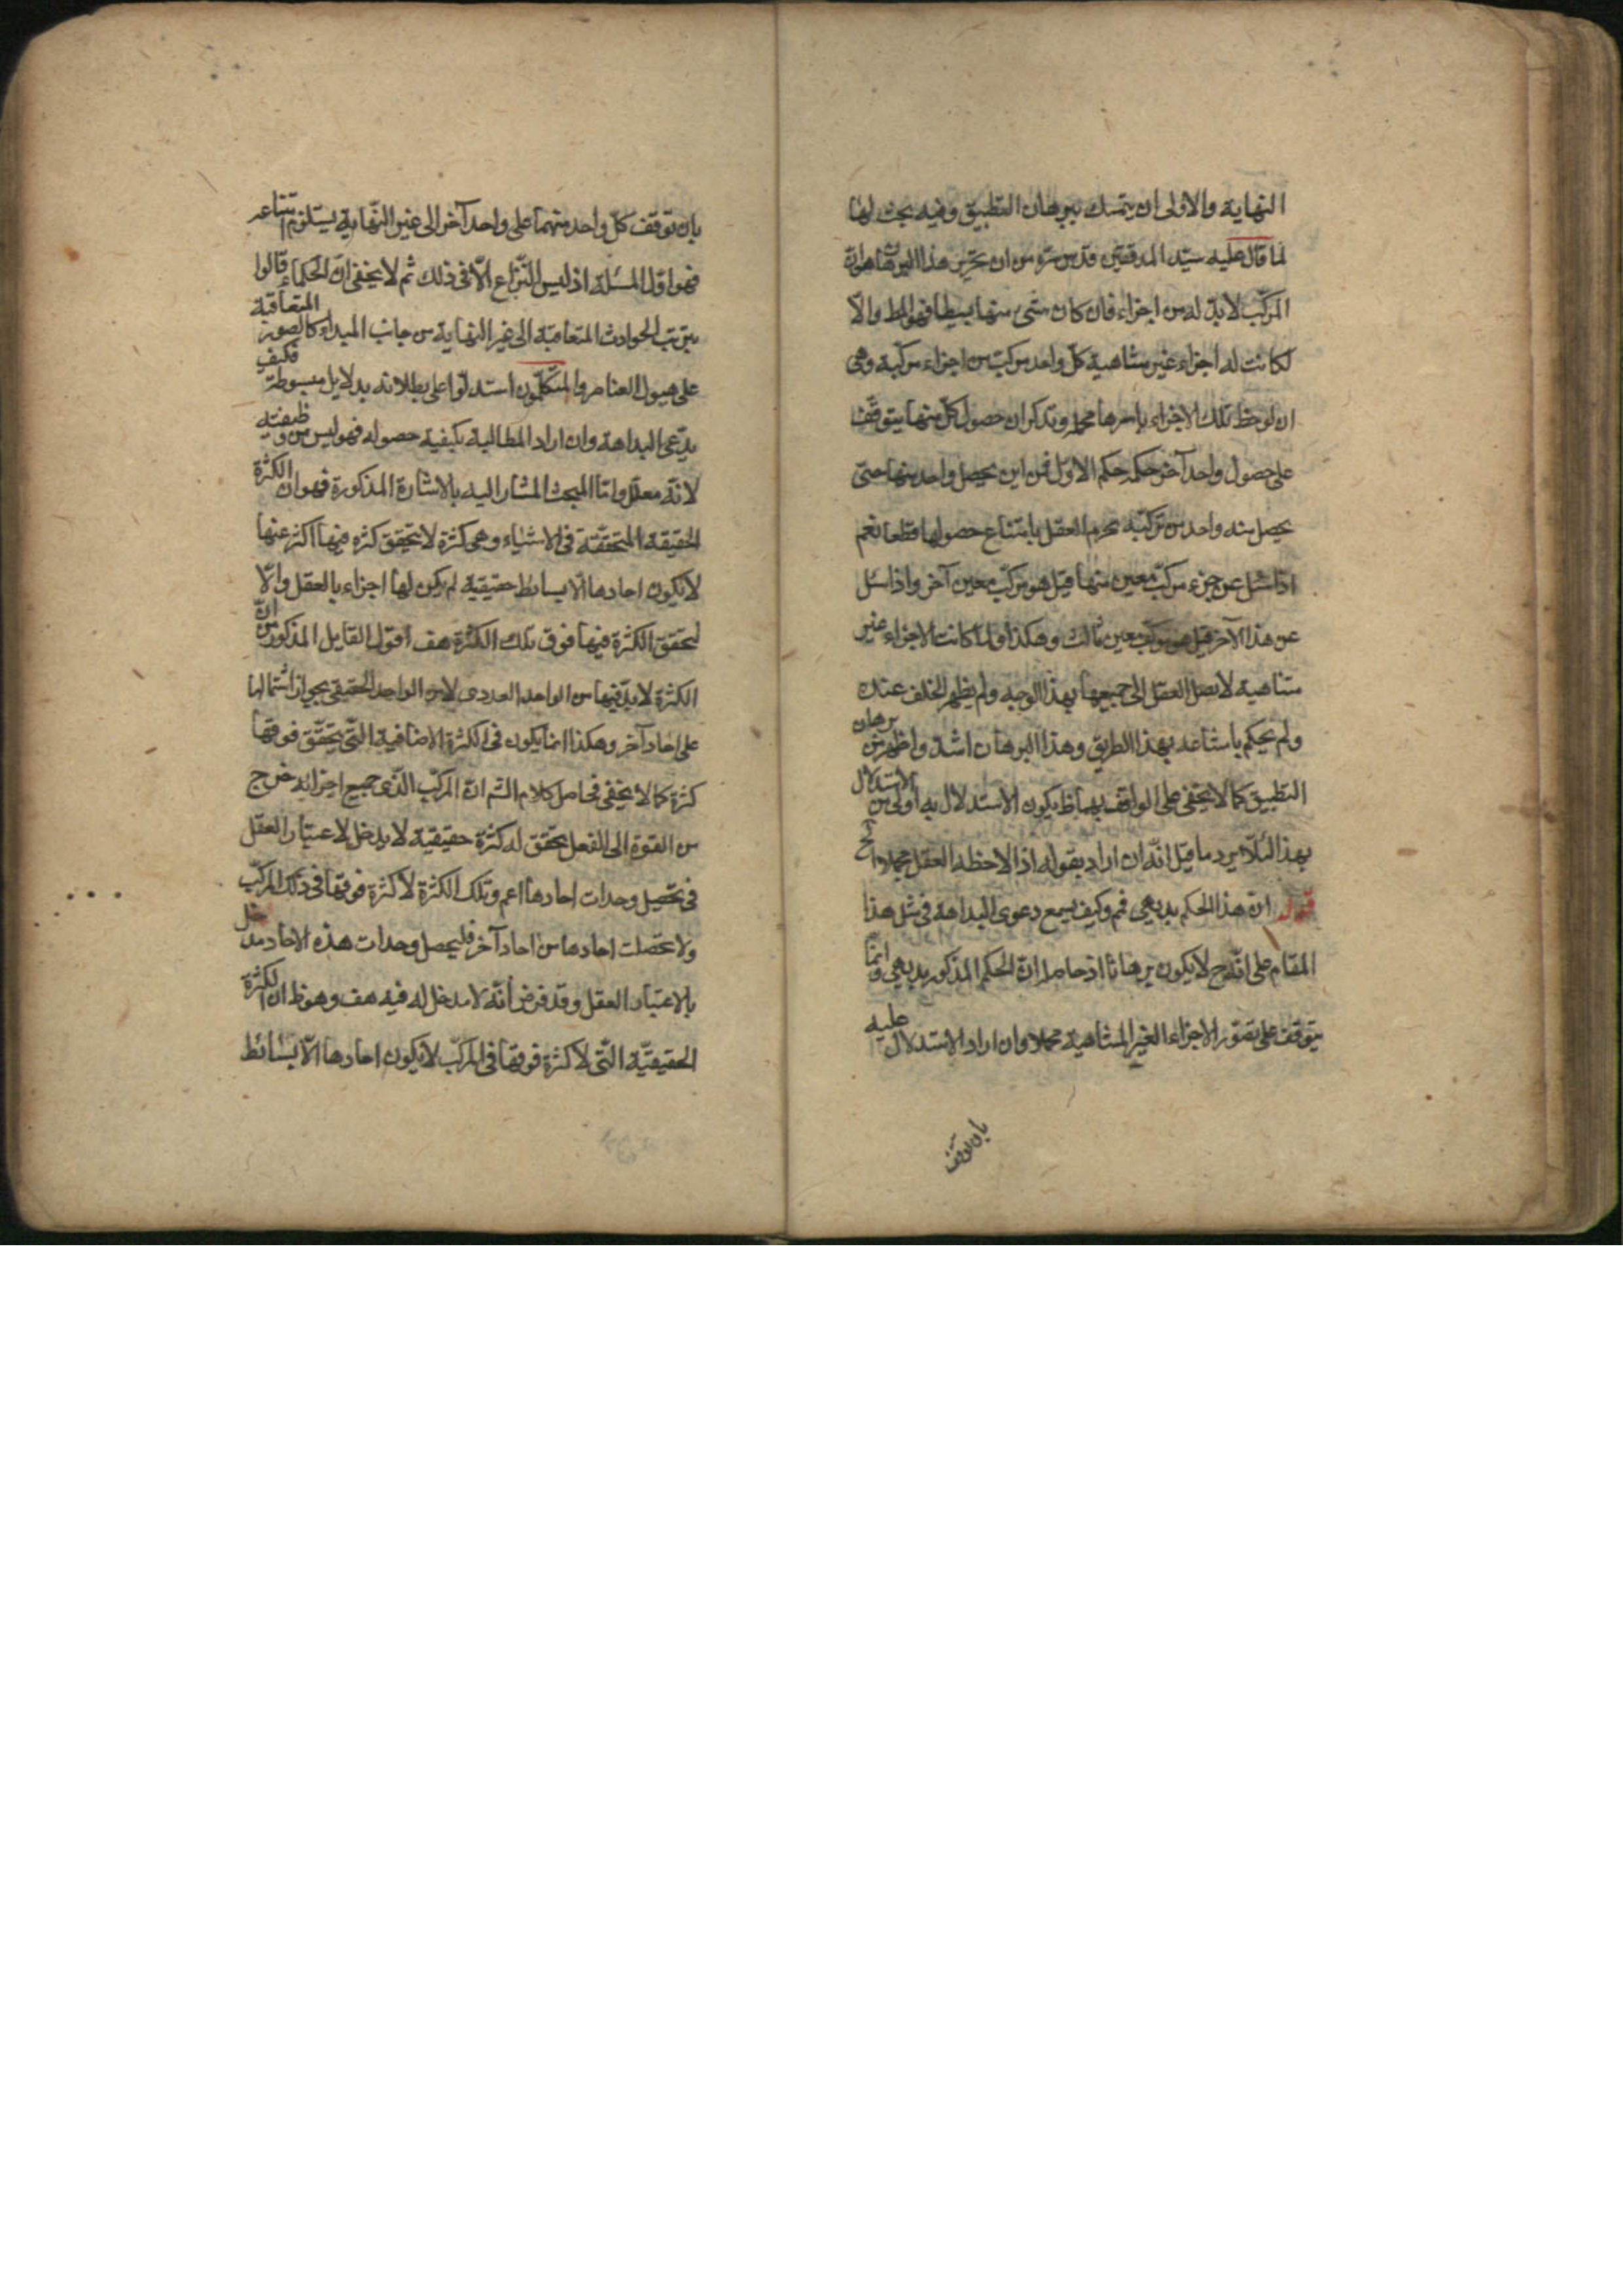 النهاية والاولى ان يتمسك ببرهان التطبيق وفيه بحث لهنا
لما قال عليه سيّد المدققين قدس سره من ان تحرير هذا البرهان هو ان
المركّب لابدّ له من اجزاء فان كان شئ منها بسيطا فهو المط والّا
لكانت له اجزاء غير متناهية كلّ واحد مركب من اجزاء مركبة وهى
ان لوحظ تلك الاجزاء باسرها مجملا وتذكر ان حصول كلّ منها يتوقّف
على حصول واحد آخر حكمه حكم الاوّل فمن اين يحصل واحد منها حتى
يحصل منه واحد من تركبه يجزم العقل بامتناع حصولها قطعا نعم
اذا سئل عن جزء مركّب معين منها قيل هو مركّب معين آخر واذا سئل
عن هذا الآخر قيل هو مركّب معين ثالث وهكذا ولما كانت الاجزاء غير
متناهية لا يصل العقل الى جميعها بهذا الوجه ولم يظهر الخلف عنده
ولم يحكم بامتناعه بهذا الطريق وهذا البرهان اشدّ واظهر من برهان
التطبيق كما لا يخفى على الواقف بهما فظ يكون الاستدلال به اولى من الاستدلال
بهذا لئلّا يرد ما قيل انّه ان اراد بقوله اذا لاحظه العقل مجملا الخ
قوله انّ هذا الحكم بديهى فمم وكيف يسمع دعوى البداهة فى مثل هذا
المقام على انّه ح لا يكون برهانا اذ حاصله انّ الحكم المذكور بديهى وانّما
يتوقف على تصوّر الاجزاء الغير المتناهية مجملا وان اراد الاستدلال عليه
بان توقف
بان توقف كلّ واحد منهما على واحد آخر الى غير النّهاية يستلزم امتناعه
فهو اوّل المسئلة اذ ليس النّزاع الّا فى ذلك ثم لا يخفى انّ الحكماء قالوا
بترتب الحوادث المتعاقبة الى غير النهاية من جانب المبداء كالصور المتعاقبة
على هيولى العناصر والمتكلّمون استدلّوا على بطلانه بدلايل مبسوطة فكيف
يدّعى البداهة وان اراد المطالبة بكيفية حصوله فهو ليس من وظيفته
لانّه معلّل وامّا المبحث المشار اليه بالاشارة المذكورة فهو ان الكثرة
الحقيقة المتحققة فى الاشياء وهى كثرة لا يتحقق كثره فيها اكثر عنها
لا يكون احادها الّا بسايط حقيقية لم يكن لها اجزاء بالعقل والّا
لتحقق الكثرة فيها فوق تلك الكثرة هف اقول القايل المذكور من انّ
الكثرة لابدّ فيها من الواحد العددى لا من الواحد الحقيقى بجواز اشتمالها
على احاد آخر وهكذا انما يكون فى الكثرة الاضافية الّتى يتحقّق فوقها
كثرة كما لا يخفى فحاصل كلام الشّ انّ المركّب الّذى جميع اجزائه خرج
من القوة الى الفعل يتحقق له كثرة حقيقية لا يدخل لاعتبار العقل
فى تحصيل وحدات احادها اعم وتلك الكثرة لا كثرة فوقها فى ذلك المركّب
ولا تحصلت احادها من احاد آخر فليحصل وحدات هذه الاحاد مدخل
بالاعتبار العقل وقد فرض انّه لا مدخل له فيه هف وهو ظ ان الكثرة
الحقيقيّة الّتى لا كثرة فوقها فى المركّب لا يكون احادها الّا بسائط